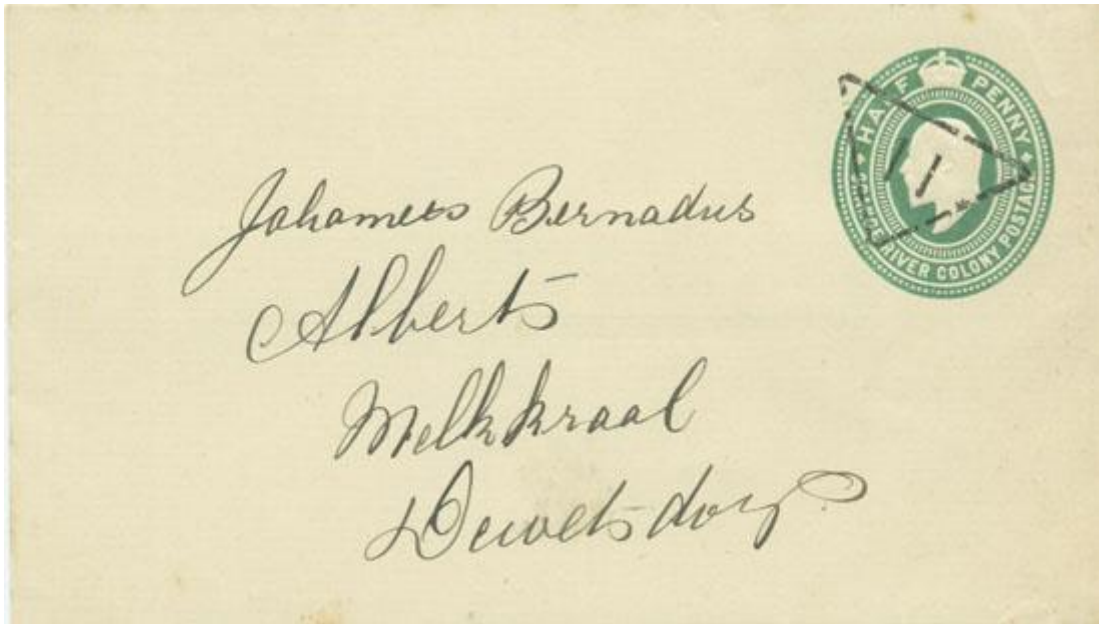 HALF PENNY
ORANGE RIVER COLONY POSTAGE
11
Johannes Bernadus
Alberts
Melkkraal
Dewetsdorp